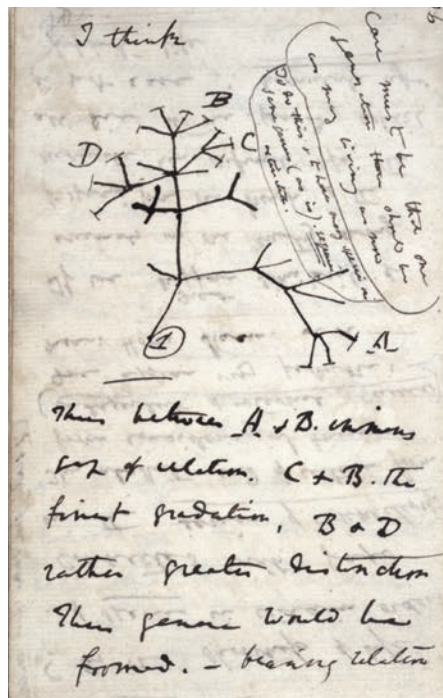 I think
Case must be that one
generation then should be
as many living as now
To do this & to have many species in
same genus (as is). requires
extinction.
B
C
D
A
1
Thus between A & B. immense
gap of relation. C & B. the
finest gradation, B & D
rather greater distinction
Thus genera would be
formed. — bearing relation